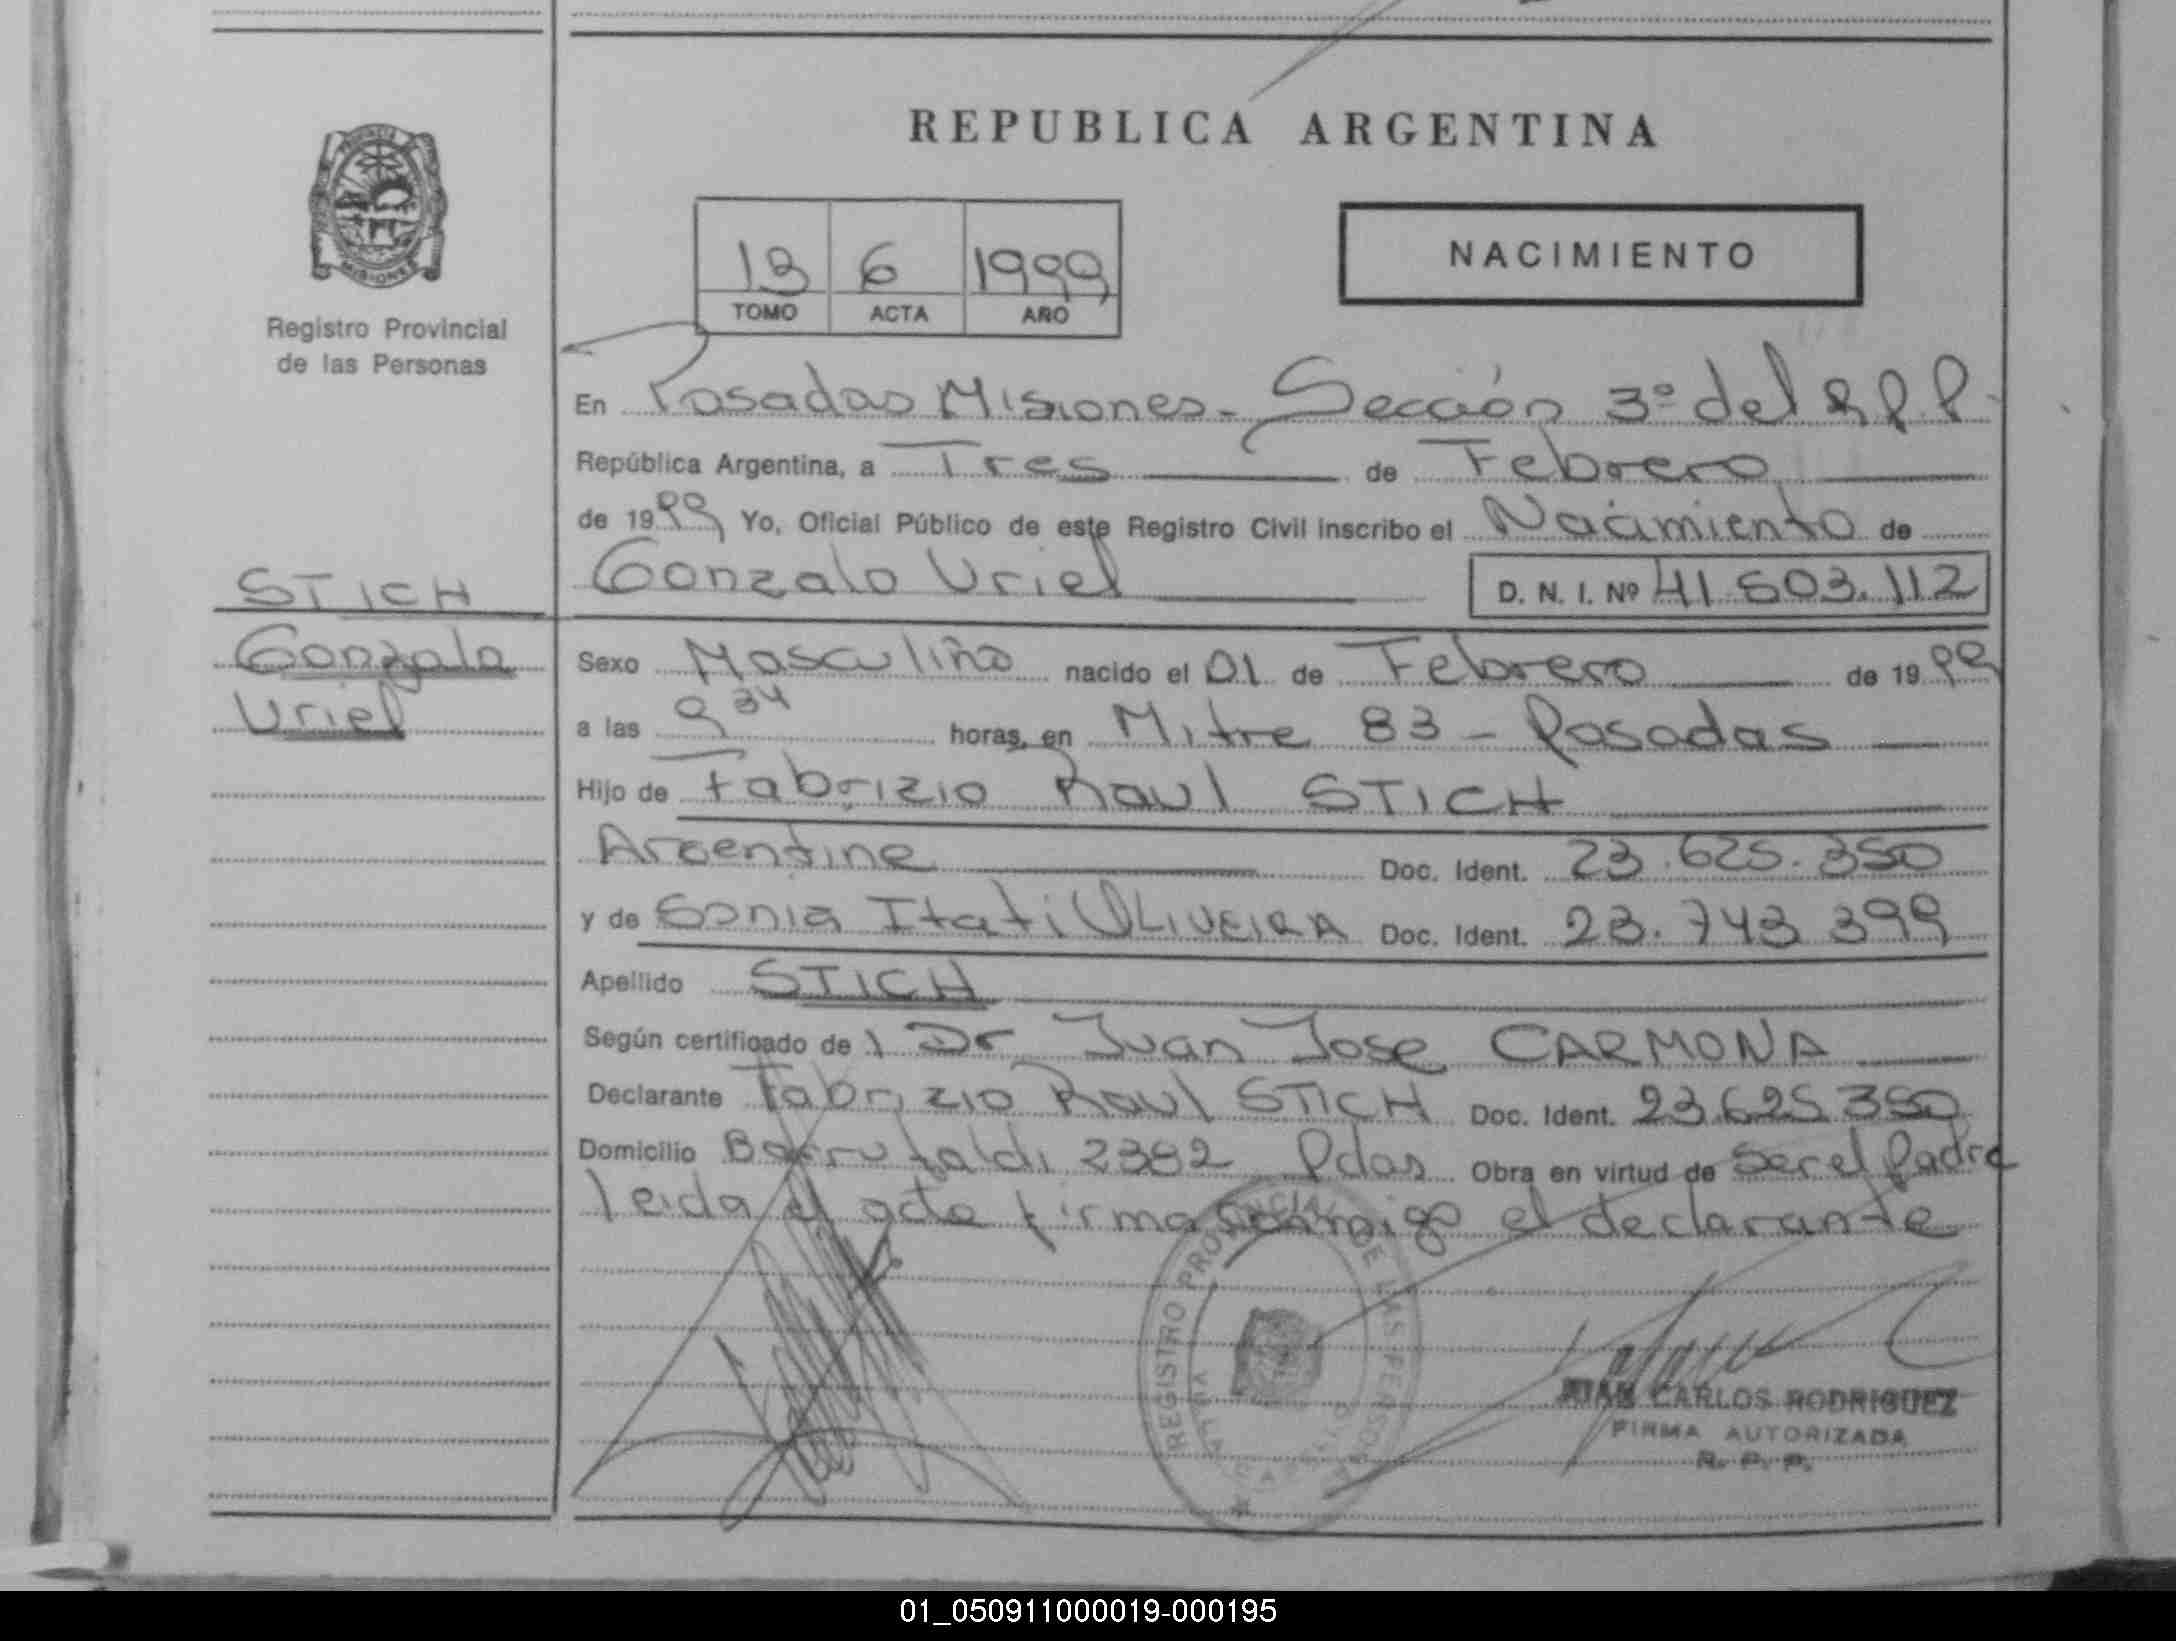 REPUBLICA ARGENTINA
PROVINCIA
MISIONES
Registro Provincial
de las Personas
13 6 1999
TOMO ACTA AÑO
NACIMIENTO
En Posadas Misiones - Sección 3º del R P P.
República Argentina, a Tres de Febrero
de 1999 Yo, Oficial Público de este Registro Civil inscribo el Nacimiento de
Gonzalo Uriel D. N. I. Nº 41.503.112
STICH
Gonzalo
Uriel
Sexo Masculino nacido el 01 de Febrero de 1999
a las 9 34 horas, en Mitre 83 - Posadas
Hijo de Fabrizio Raul STICH
Argentine Doc. Ident. 23.625.350
y de Sonia Itati OLIVEIRA Doc. Ident. 23.743 399
Apellido STICH
Según certificado de l Dr Juan Jose CARMONA
Declarante Fabrizio Raul STICH Doc. Ident. 23.625.350
Domicilio Barrufaldi 2382 Pdas Obra en virtud de Ser el Padre
leida el acta firma conmigo el declarante
REGISTRO PROVINCIAL DE LAS PERSONAS
JUAN CARLOS RODRIGUEZ
FIRMA AUTORIZADA
R. P. P.
01_050911000019-000195